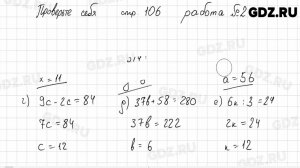 Проверьте себя стр 106 работа №2
GDZ.RU
x = 11
a = 56
г) 9c - 2c = 84
7c = 84
c = 12
д) 37b + 58 = 280
37b = 222
b = 6
е) 6k : 3 = 24
2k = 24
k = 12
GDZ.RU